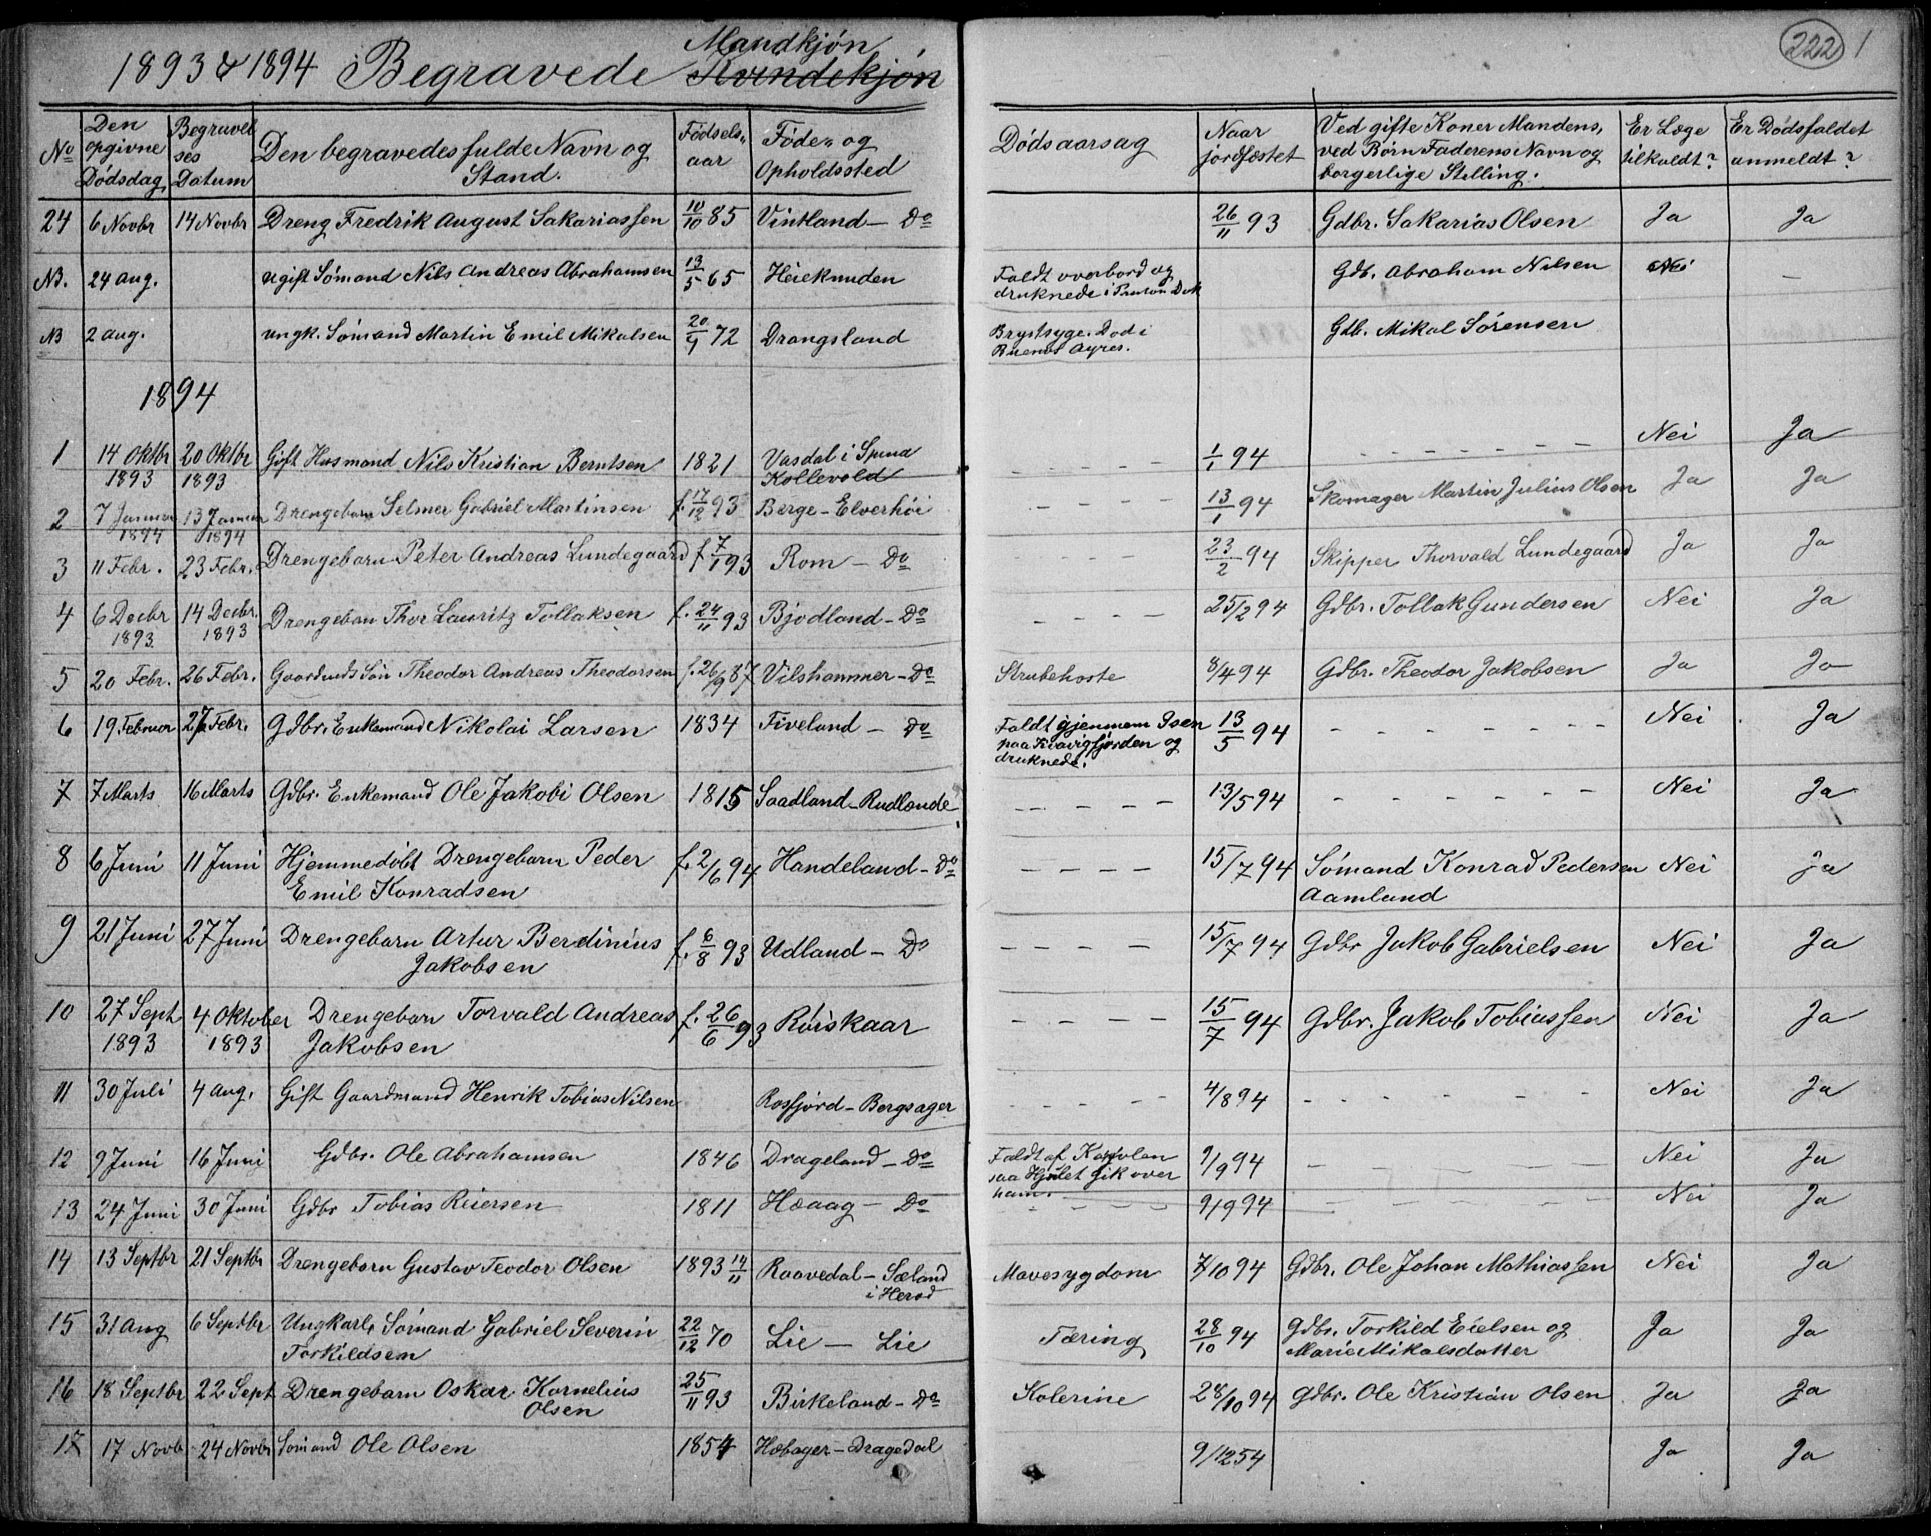 222 1
1893 & 1894 Begravede Mandkjøn
Kvindekjøn
No | Den opgivne Dødsdag | Begravelses Datum | Den begravedes fulde Navn og Stand. | Fødselsaar | Føde- og Opholdssted | Dødsaarsag | Naar jordfæstet | Ved gifte Koner Mandens, ved Børn Faderens Navn og borgerlige Stilling. | Er Læge tilkaldt? | Er Dødsfaldet anmeldt?
24 | 6 Novbr | 14 Novbr | Dreng Fredrik August Sakariassen | 10/10 85 | Vintland - Do | 26/11 93 | Gdbr. Sakarias Olsen | Ja | Ja
NB. | 24 Aug. | ugift Sømand Nils Andreas Abrahamsen | 13/5 65 | Heieknuden | Faldt overbord og druknede i Dok | Gdb. Abraham Nilsen | Nei | -
NB | 2 Aug. | ungk. Sømand Martin Emil Mikalsen | 72 | Drangsland | Brystsyge. Død i Buenos Ayres. | Gdb. Mikal Sørensen
1894
1 | 14 Oktbr 1893 | 20 Oktbr 1893 | Gift Husmand Nils Kristian Berntsen | 1821 | Vasdal i Kollevold | - - - - | 1/1 94 | - - - - - | Nei | Ja
2 | 7 Januar 1894 | 13 Januar 1894 | Drengebarn Selmer Gabriel Martinsen | f. 17/12 93 | Berge - Elverhøi | 13/1 94 | Skomager Martin Julius Olsen | Ja | Ja
3 | 11 Febr. | 23 Febr. | Drengebarn Peter Andreas Lundegaard | f 7/1 93 | Rom - Do | - - | 23/2 94 | Skipper Thorvald Lundegaard | Ja | Ja
4 | 6 Decbr 1893 | 14 Decbr. 1893 | Drengebarn Thor Lauritz Tollaksen | f. 24/11 93 | Bjodland - Do | - - - - | 25/2 94 | Gdbr. Tollak Gundersen | Nei | Ja
5 | 20 Febr. | 26 Febr. | Søn Theodor Andreas Theodorsen | f. 26/9 87 | Vilshammer - Do | Strubehoste | 8/4 94 | Gdbr. Theodor Jakobsen | Ja | Ja
6 | 19 Februar | 27 Febr. | Gdbr. Enkemand Nikolai Larsen | 1834 | Fiveland - Do | Faldt gjennem Isen paa Kvavigfjorden og druknede. | 13/5 94 | - - - - - - | Nei | Ja
7 | 7 Marts | 16 Marts | Gdbr. Enkemand Ole Jakobi Olsen | 1815 | Saadland - Rudlande | - - - - | 13/5 94 | - - - - - - | Nei | Ja
8 | 6 Juni | 11 Juni | Hjemmedøbt Drengebarn Peder Emil Konradsen | f. 2/6 94 | Handeland - Do | - - - - | 15/7 94 | Sømand Konrad Pedersen Aamland | Nei | Ja
9 | 21 Juni | 27 Juni | Drengebarn Artur Berdinius Jakobsen | f. 6/8 93 | Udland - Do | - - - - | 15/7 94 | Gdbr Jakob Gabrielsen | Nei | Ja
10 | 27 Sept 1893 | 4 Oktober 1893 | Drengebarn Torvald Andreas Jakobsen | f. 26/6 93 | Røiskaar | - - - - | 15/7 94 | Gdbr. Jakob Tobiassen | Nei | Ja
11 | 30 Juli | 4 Aug. | Gift Gaardmand Henrik Tobias Nilsen | Rosfjord - Bergsager | - - - - | 4/8 94 | - - - - - - | Nei | Ja
12 | 9 Juni | 16 Juni | Gdbr. Ole Abrahamsen | 1846 | Drageland - Do | Faldt af saa Hjulet gik over ham. | 9/9 94 | - - - - - | Nei | Ja
13 | 24 Juni | 30 Juni | Gdbr Tobias Reiersen | 1811 | Hæaag - Do | - - - - - | 9/9 94 | - - - - - | Nei | Ja
14 | 13 Septbr | 21 Septbr | Drengebarn Gustav Teodor Olsen | 1893 14/11 | Raavedal - Sæland i Herad | Mavesygdom | 7/10 94 | Gdbr. Ole Johan Mathiassen | Nei | Ja
15 | 31 Aug | 6 Septbr | Ungkarl, Sømand Gabriel Severin Torkildsen | 22/12 70 | Lie - Lie | Tæring | 28/10 94 | Gdbr. Torkild Eielsen og Marie Mikalsdatter | Ja | Ja
16 | 18 Septbr | 22 Sept | Drengebarn Oskar Kornelius Olsen | 25/11 93 | Birkeland - Do | Kolerine | 28/10 94 | Gdbr. Ole Kristian Olsen | Ja | Ja
17 | 17 Novb | 24 Novbr | Sømand Ole Olsen | 1854 | Hæbager - Dragedal | 9/12 54 | Ja | Ja